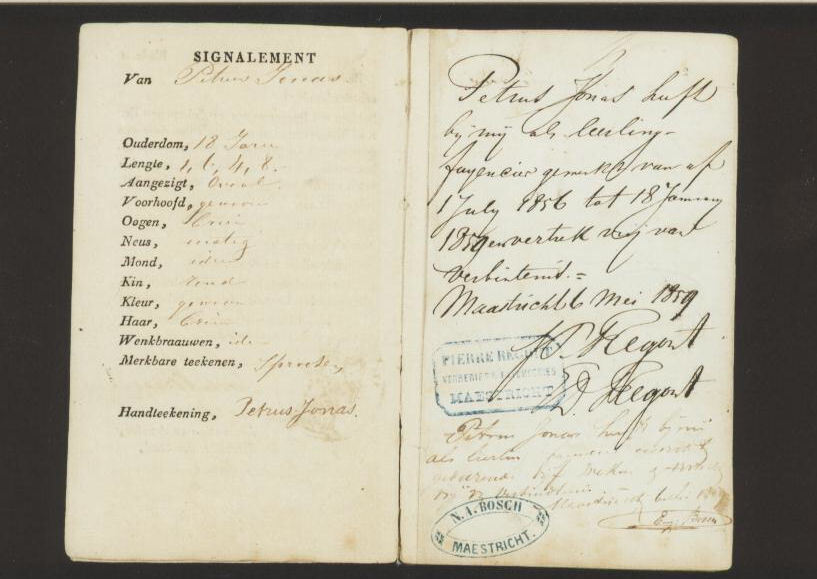 SIGNALEMENT
Van Petrus Jonas
Ouderdom, 18 Jaren
Lengte, 1, 6, 4, 8.
Aangezigt, Ovaal
Voorhoofd, gewoon
Oogen, bruin
Neus, matig
Mond, idem
Kin, rond
Kleur, gewoon
Haar, bruin
Wenkbraauwen, idem
Merkbare teekenen, Sproeten
Handteekening, Petrus Jonas.
Petrus Jonas heeft
bij mij als leerling-
fayencier gewerkt van af
1 July 1856 tot 18 January
1859 en vertrek vrij van
verbintenis.=
Maastricht 6 Mei 1859
P. Regout
PIERRE REGOUT
VERRERIES & FAIENCES
MAESTRICHT
Regout
Petrus Jonas heeft bij mij
als leerling
gedurende vijf weken gewerkt
vrij van verbindtenis
Maastricht
N. A. BOSCH
MAESTRICHT.